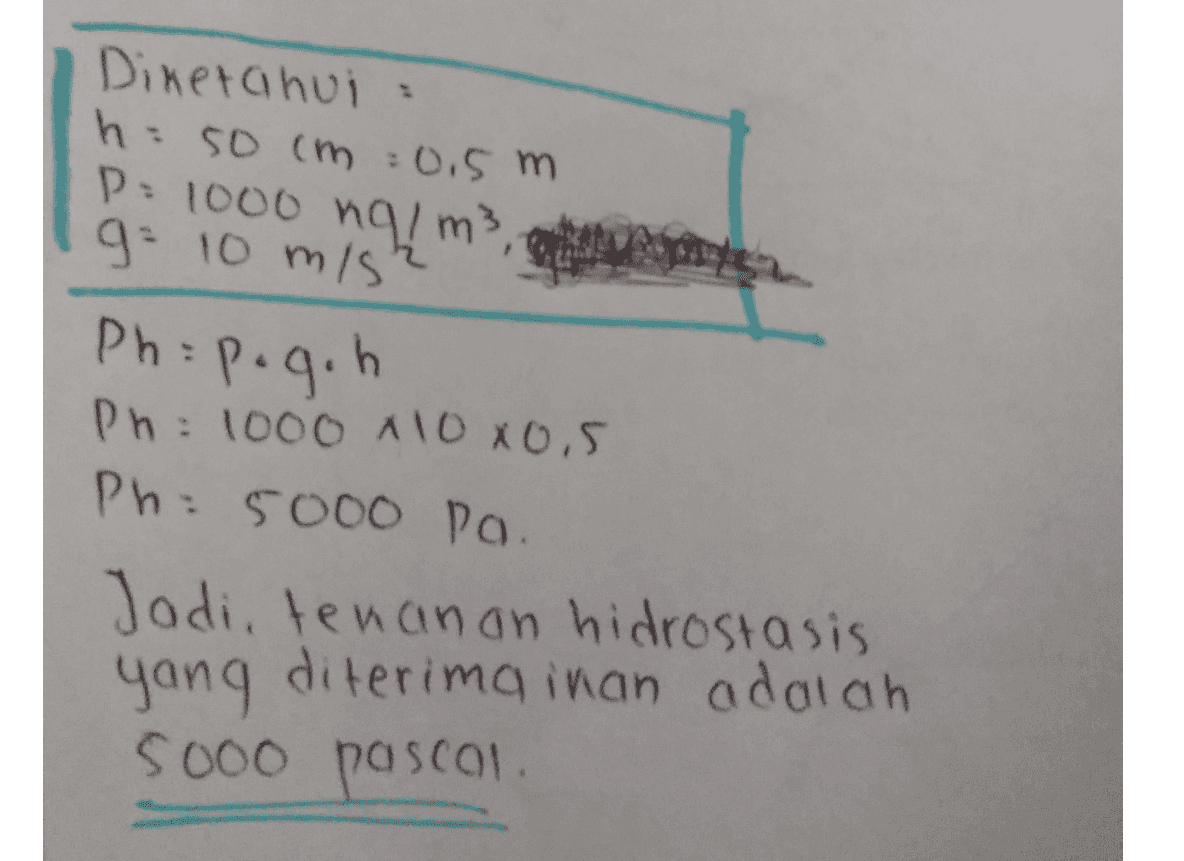 Diketahui :
h = 50 cm = 0,5 m
P = 1000 kg/m³,
g = 10 m/s²
Ph = p . g . h
Ph = 1000 x 10 x 0,5
Ph = 5000 Pa.
Jadi, tekanan hidrostasis
yang diterima ikan adalah
5000 pascal.